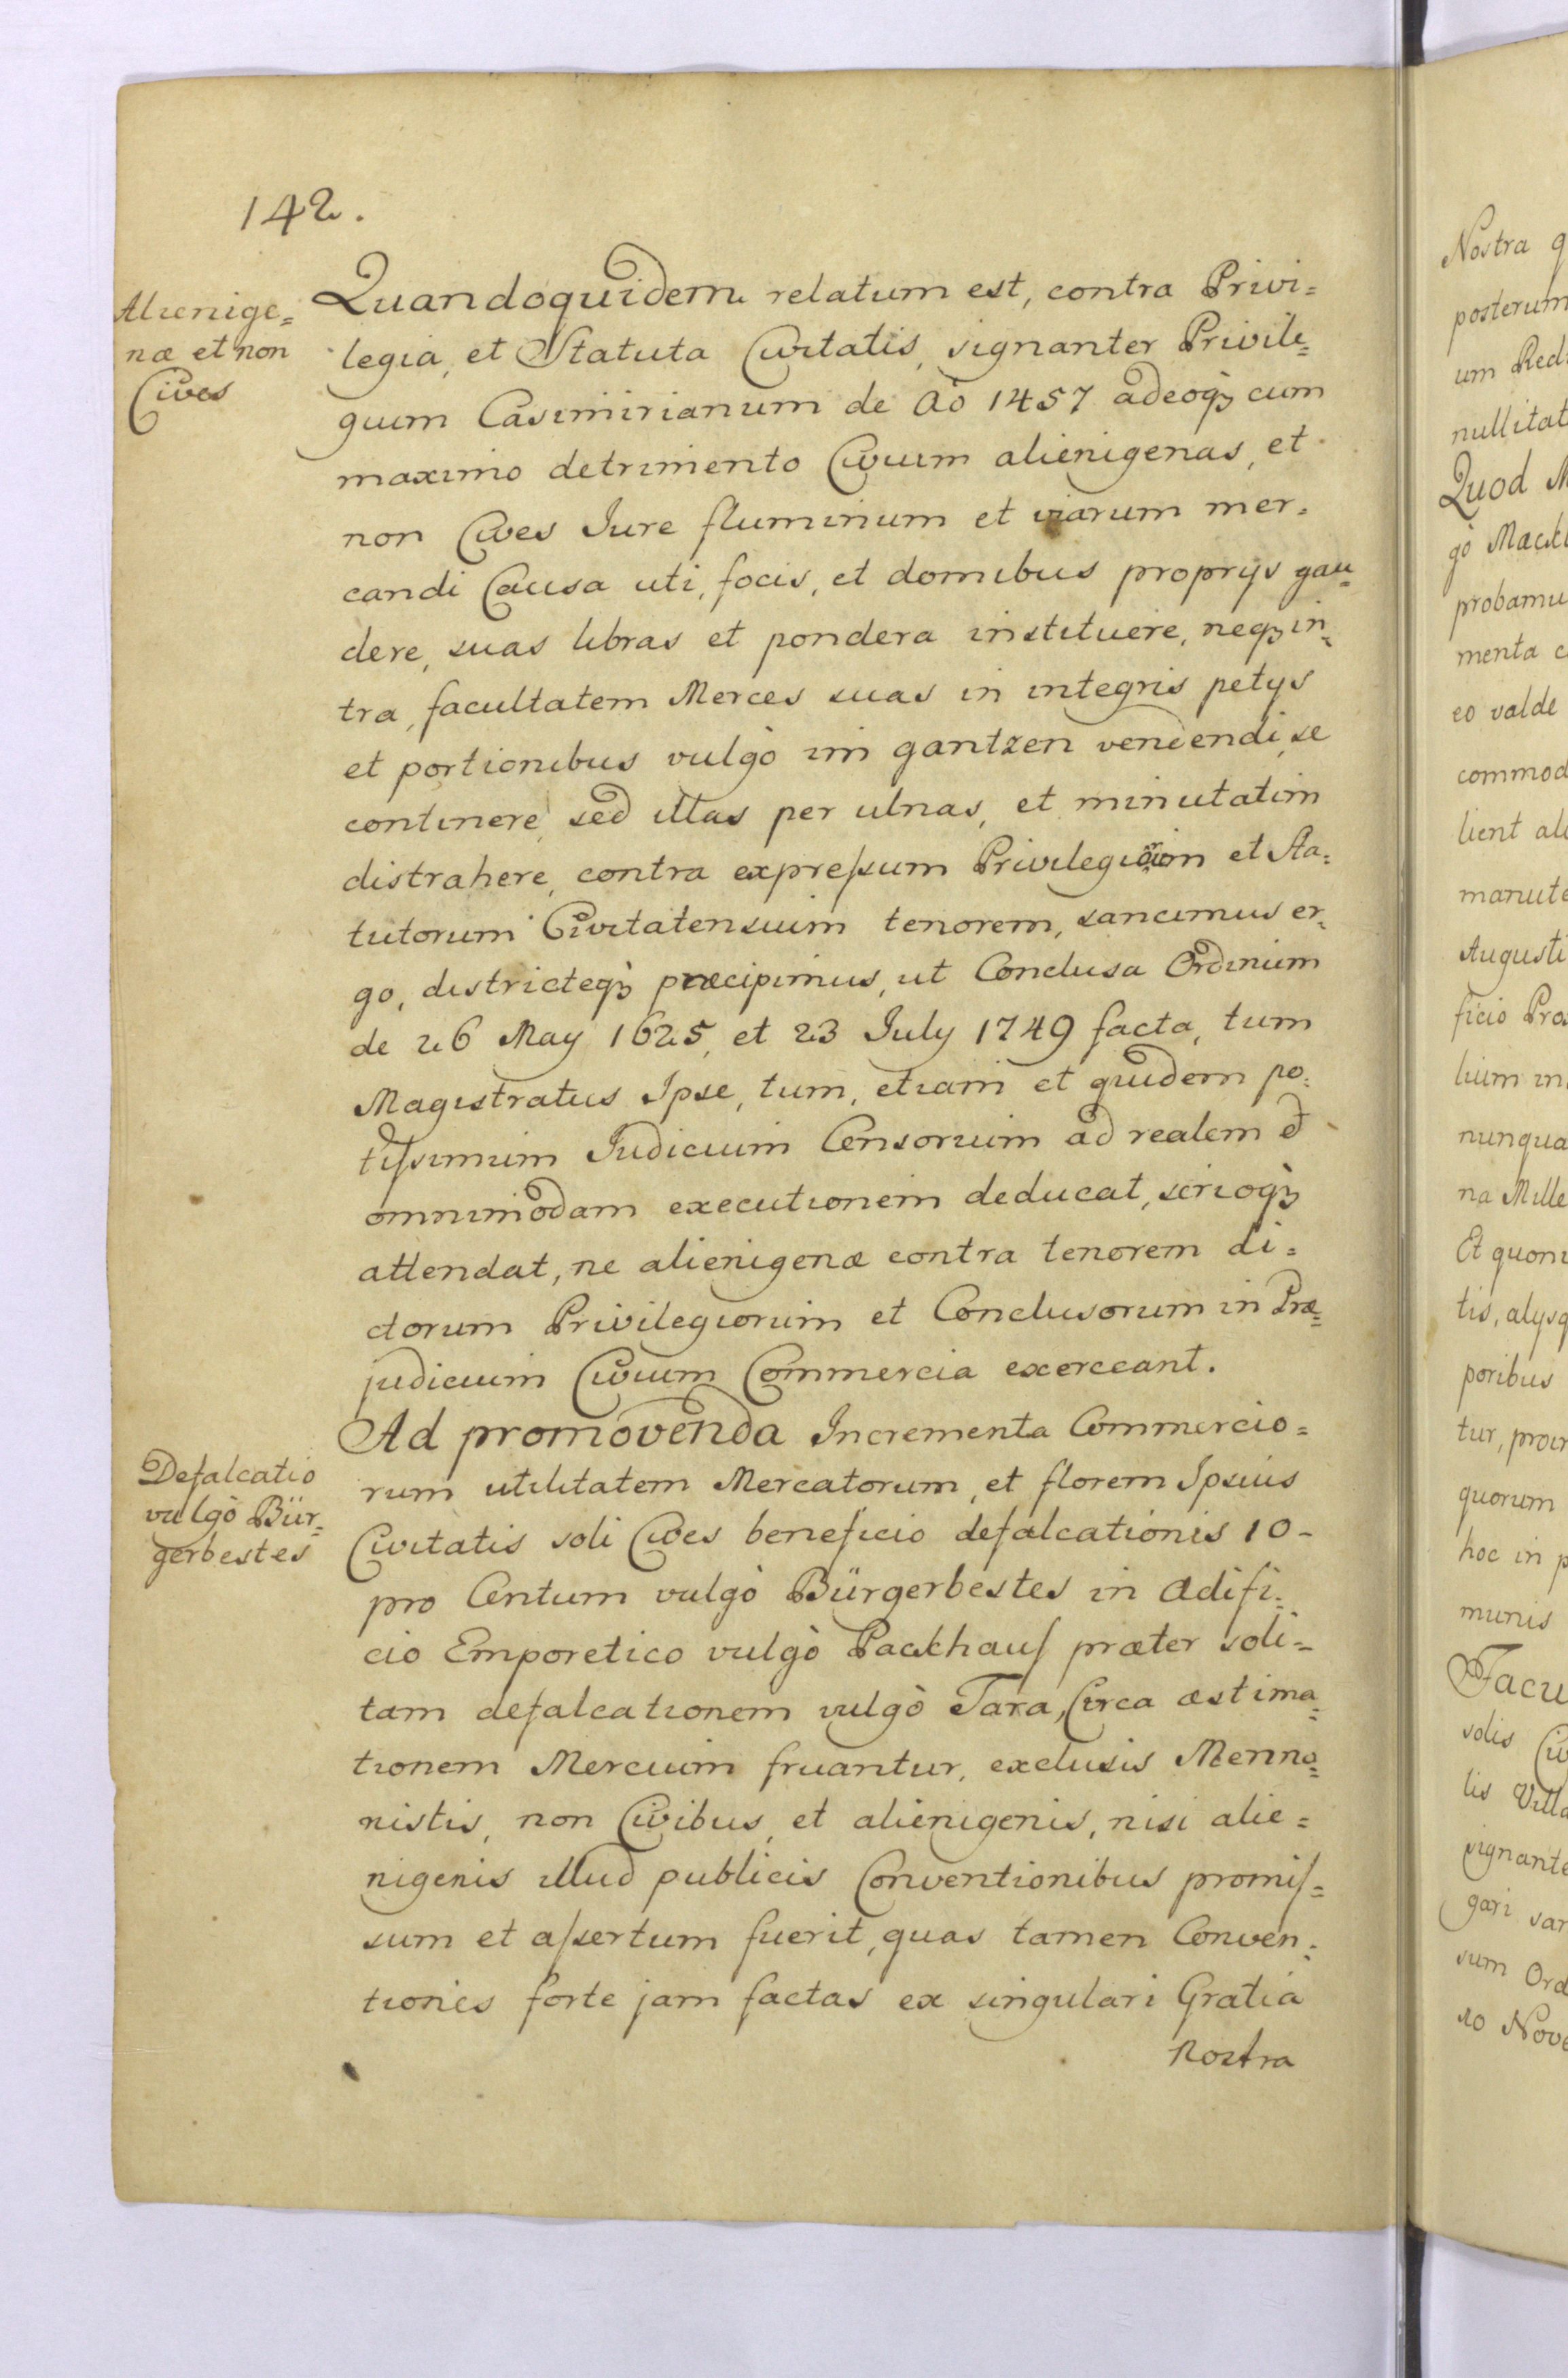 142.
Alienige=
næ et non
Cives
Quandoquidem relatum est, contra Privi=
legia, et Statuta Civitatis, signanter Privile=
gium Casimirianum de Aõ 1457 adeoq3 cum
maximo detrimento Civium alienigenas, et
non Cives Jure fluminum et viarum mer=
candi Causa uti, focis, et domibus proprijs gau=
dere, suas libras et pondera instituere, neq3 in=
tra, facultatem Merces suas in integris petijs
et portionibus vulgò im gantzen vendendi, se
continere, sed illas per ulnas, et minutatim
distrahere, contra expreſsum Privilegiorum et Sta=
tutorum Civitatensium tenorem, sancimus er=
go, districteq3 præcipimus, ut Conclusa Ordinum
de 26 May 1625, et 23 July 1749 facta, tum
Magistratus Ipse, tum, etiam et quidem po=
tiſsimum Judicium Censorium ad realem et
omnimodam executionem deducat, serioq3
attendat, ne alienigenæ contra tenorem di=
ctorum Privilegiorum et Conclusorum in Præ=
judicium Civium Commercia exerceant.
Defalcatio
vulgò Bür=
gerbestes
Ad promovenda Incrementa Commercio=
rum utilitatem Mercatorum, et florem Ipsius
Civitatis soli Cives beneficio defalcationis 10-
pro Centum vulgò Bürgerbestes in Ædifi=
cio Emporetico vulgò Packhauſ præter soli=
tam defalcationem vulgò Tara, Circa æstima=
tionem Mercium fruantur, exclusis Menno=
nistis, non Civibus, et alienigenis, nisi alie=
nigenis illud publicis Conventionibus promiſ=
sum et aſsertum fuerit, quas tamen Conven=
tiones forte jam factas ex singulari Gratia
Nostra
Nostra
posterum
um
nullitat
Quod
gò
probamu
menta c
eo valde
commod
lient
manute
Augusti
ficio
lium in
nunqua
na Mille
Et quoni
tis, alijsq
poribus
tur,
quorum
hoc in p
munis
Facu
solis
lis Villa
signante
gari
sum Ord
Nove